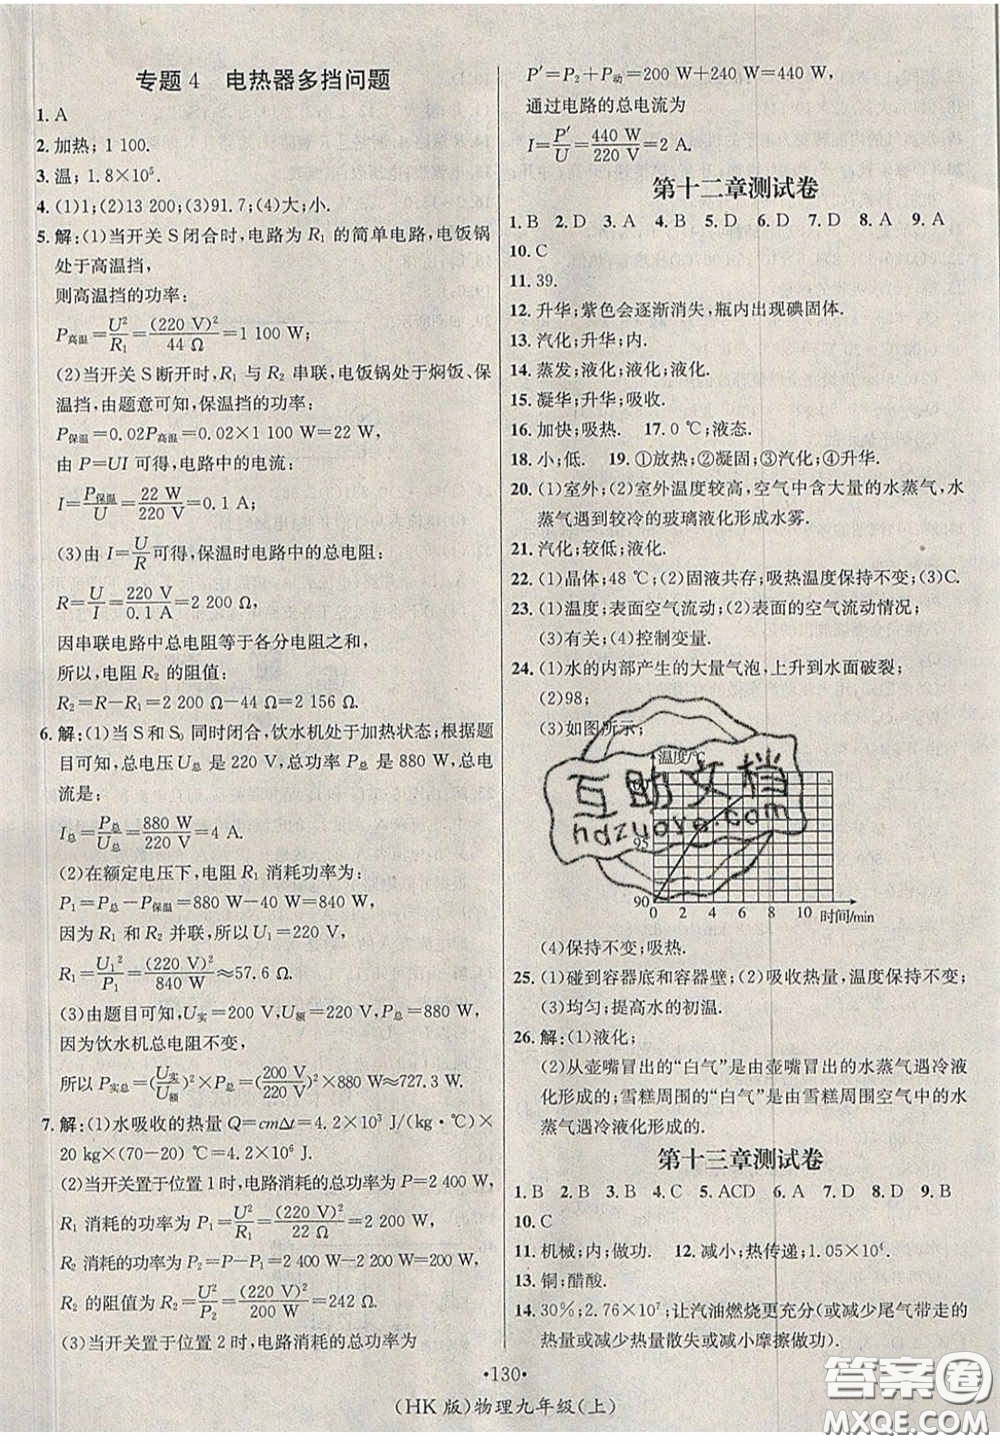 专题4 电热器多挡问题
1. A
2. 加热；1 100.
3. 温；1.8×10⁵.
4. (1)1；(2)13 200；(3)91.7；(4)大；小.
5. 解：(1)当开关S闭合时，电路为R₁的简单电路，电饭锅
处于高温挡，
则高温挡的功率：
P高温=U²/R₁=(220 V)²/44 Ω=1 100 W；
(2)当开关S断开时，R₁与R₂串联，电饭锅处于焖饭、保
温挡，由题意可知，保温挡的功率：
P保温=0.02P高温=0.02×1 100 W=22 W，
由P=UI可得，电路中的电流：
I=P保温/U=22 W/220 V=0.1 A；
(3)由I=U/R可得，保温时电路中的总电阻：
R=U/I=220 V/0.1 A=2 200 Ω，
因串联电路中总电阻等于各分电阻之和，
所以，电阻R₂的阻值：
R₂=R-R₁=2 200 Ω-44 Ω=2 156 Ω.
6. 解：(1)当S和S₀同时闭合，饮水机处于加热状态；根据题
目可知，总电压U总是220 V，总功率P总是880 W，总电
流是：
I总=P总/U总=880 W/220 V=4 A.
(2)在额定电压下，电阻R₁消耗功率为：
P₁=P总-P保温=880 W-40 W=840 W，
因为R₁和R₂并联，所以U₁=220 V，
R₁=U₁²/P₁=(220 V)²/840 W≈57.6 Ω.
(3)由题目可知，U实=200 V，U额=220 V，P总=880 W，
因为饮水机总电阻不变，
所以P实总=(U实/U额)²×P总=(200 V/220 V)²×880 W≈727.3 W.
7. 解：(1)水吸收的热量Q=cmΔt=4.2×10³ J/(kg·℃)×
20 kg×(70-20) ℃=4.2×10⁶ J.
(2)当开关置于位置1时，电路消耗的总功率P=2 400 W，
R₁消耗的功率为P₁=U²/R₁=(220 V)²/22 Ω=2 200 W，
R₂消耗的功率为P₂=P-P₁=2 400 W-2 200 W=200 W，
R₂的阻值为R₂=U²/P₂=(220 V)²/200 W=242 Ω.
(3)当开关置于位置2时，电路消耗的总功率为
P′=P₂+P动=200 W+240 W=440 W，
通过电路的总电流为
I=P′/U=440 W/220 V=2 A.
第十二章测试卷
1. B 2. D 3. A 4. B 5. D 6. D 7. D 8. A 9. A
10. C
11. 39.
12. 升华；紫色会逐渐消失，瓶内出现碘固体.
13. 汽化；升华；内.
14. 蒸发；液化；液化；液化.
15. 凝华；升华；吸收.
16. 加快；吸热. 17. 0 ℃；液态.
18. 小；低. 19. ①放热；②凝固；③汽化；④升华.
20. (1)室外；(2)室外温度较高，空气中含大量的水蒸气，水
蒸气遇到较冷的玻璃液化形成水雾.
21. 汽化；较低；液化.
22. (1)晶体；48 ℃；(2)固液共存；吸热温度保持不变；(3)C.
23. (1)温度；表面空气流动；(2)表面的空气流动情况；
(3)有关；(4)控制变量.
24. (1)水的内部产生的大量气泡，上升到水面破裂；
(2)98；
(3)如图所示；
温度/℃
互助文档
hdzuoye.com
95
90
0 2 4 6 8 10 时间/min
(4)保持不变；吸热.
25. (1)碰到容器底和容器壁；(2)吸收热量，温度保持不变；
(3)均匀；提高水的初温.
26. 解：(1)液化；
(2)从壶嘴冒出的“白气”是由壶嘴冒出的水蒸气遇冷液
化形成的；雪糕周围的“白气”是由雪糕周围空气中的水
蒸气遇冷液化形成的.
第十三章测试卷
1. B 2. B 3. B 4. C 5. ACD 6. A 7. D 8. D 9. B
10. C
11. 机械；内；做功. 12. 减小；热传递；1.05×10⁶.
13. 铜；醋酸.
14. 30%；2.76×10⁷；让汽油燃烧更充分(或减少尾气带走的
热量或减少热量散失或减小摩擦做功).
·130·
(HK版)物理九年级(上)
答案圈
MXQE.COM